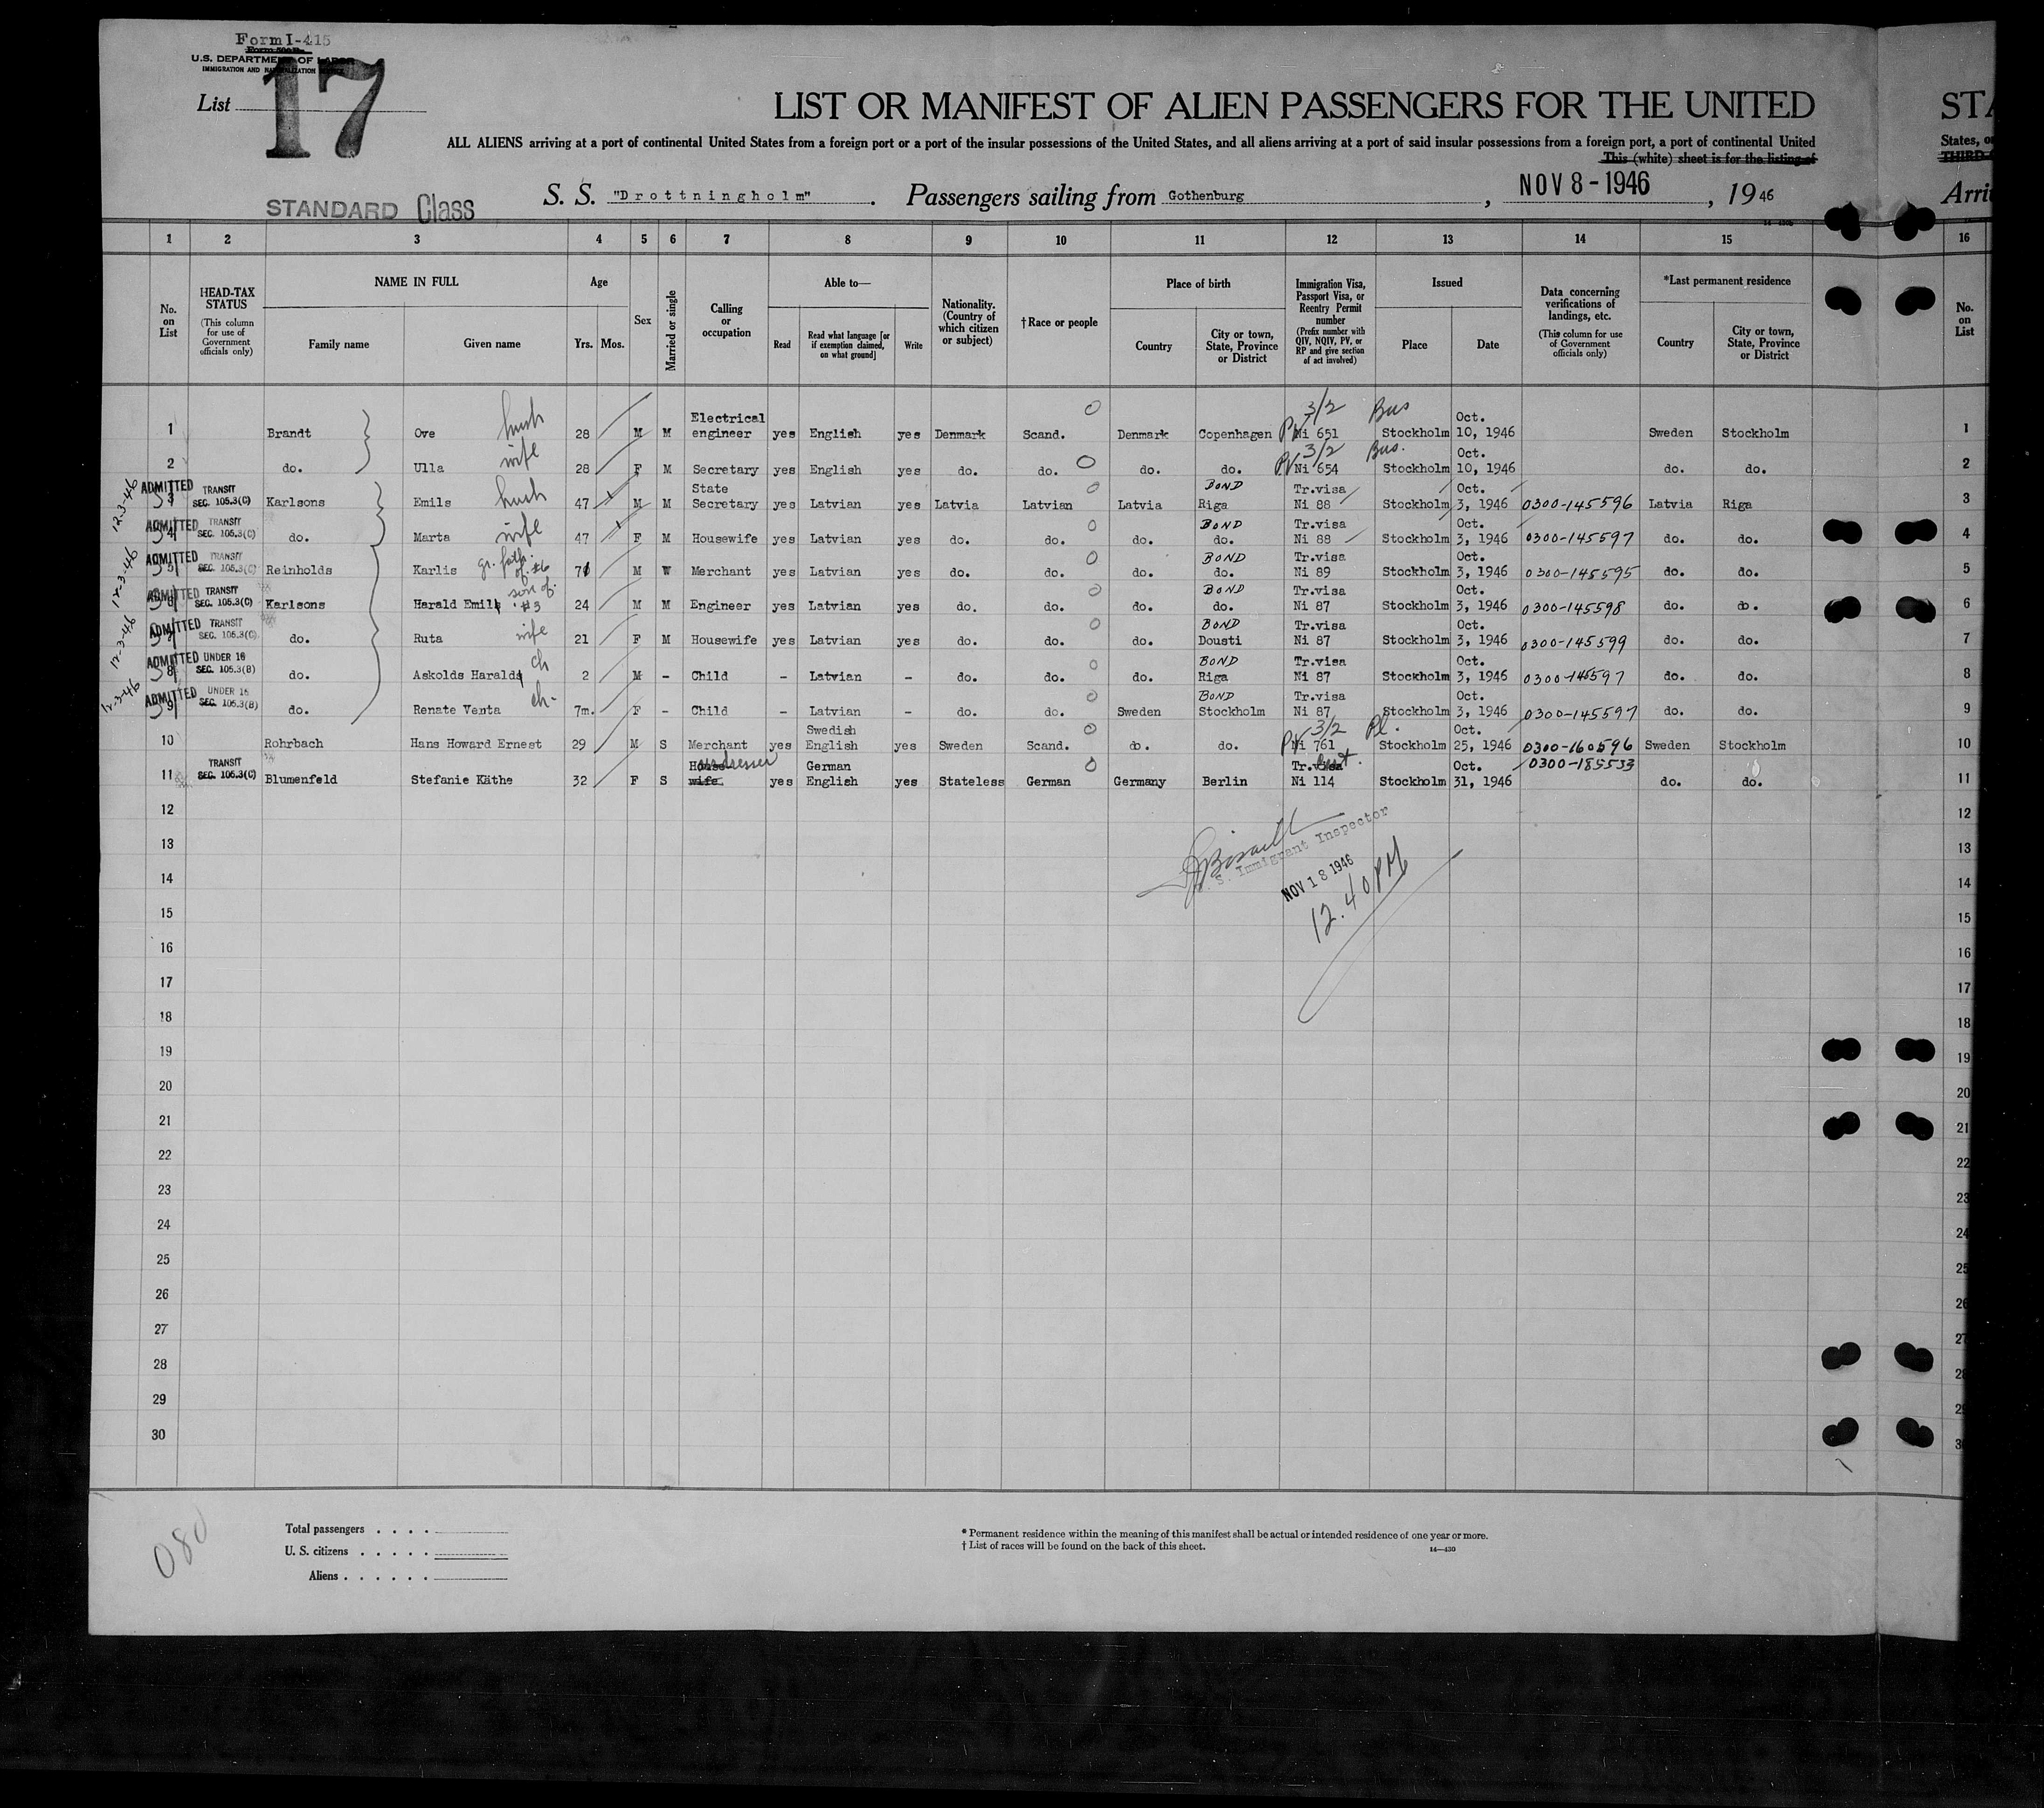 Form I-415
U.S. DEPARTMENT OF LABOR
IMMIGRATION AND NATURALIZATION SERVICE
List 17
LIST OR MANIFEST OF ALIEN PASSENGERS FOR THE UNITED STA
ALL ALIENS arriving at a port of continental United States from a foreign port or a port of the insular possessions of the United States, and all aliens arriving at a port of said insular possessions from a foreign port, a port of continental United States, o
This (white) sheet is for the listing of THIRD
STANDARD Class S. S. "Drottningholm". Passengers sailing from Gothenburg, NOV 8-1946, 1946 Arri
1 2 3 4 5 6 7 8 9 10 11 12 13 14 15 16
No. on List
HEAD-TAX STATUS (This column for use of Government officials only)
NAME IN FULL Family name Given name
Age Yrs. Mos.
Sex
Married or single
Calling or occupation
Able to— Read Read what language [or if exemption claimed, on what ground] Write
Nationality. (Country of which citizen or subject)
†Race or people
Place of birth Country City or town, State, Province or District
Immigration Visa, Passport Visa, or Reentry Permit number (Prefix number with QIV, NQIV, PV, or RP and give section of act involved)
Issued Place Date
Data concerning verifications of landings, etc. (This column for use of Government officials only)
*Last permanent residence Country City or town, State, Province or District
No. on List
1 Brandt Ove hush 28 M M Electrical engineer yes English yes Denmark Scand. 0 Denmark Copenhagen 3/2 PV Ni 651 Bus Stockholm Oct. 10, 1946 Sweden Stockholm 1
2 do. Ulla wife 28 F M Secretary yes English yes do. do. 0 do. do. 3/2 PV Ni 654 Bus. Stockholm Oct. 10, 1946 do. do. 2
12-3-46 ADMITTED 3 TRANSIT SEC. 105.3(C) Karlsons Emils hush 47 M M State Secretary yes Latvian yes Latvia Latvian 0 Latvia BOND Riga Tr.visa Ni 88 Stockholm Oct. 3, 1946 0300-145596 Latvia Riga 3
ADMITTED 4 TRANSIT SEC. 105.3(C) do. Marta wife 47 F M Housewife yes Latvian yes do. do. 0 do. BOND do. Tr.visa Ni 88 Stockholm Oct. 3, 1946 0300-145597 do. do. 4
12-3-46 ADMITTED 5 TRANSIT SEC. 105.3(C) Reinholds Karlis gr. fath. of #6 M W Merchant yes Latvian yes do. do. 0 do. BOND do. Tr.visa Ni 89 Stockholm Oct. 3, 1946 0300-145595 do. do. 5
ADMITTED 6 TRANSIT SEC. 105.3(C) Karlsons Harald Emils son of #3 24 M M Engineer yes Latvian yes do. do. 0 do. BOND do. Tr.visa Ni 87 Stockholm Oct. 3, 1946 0300-145598 do. do. 6
12-3-46 ADMITTED 7 TRANSIT SEC. 105.3(C) do. Ruta wife 21 F M Housewife yes Latvian yes do. do. 0 do. BOND Dousti Tr.visa Ni 87 Stockholm Oct. 3, 1946 0300-145599 do. do. 7
ADMITTED 8 UNDER 16 SEC. 105.3(B) do. Askolds Haralds ch 2 M - Child - Latvian - do. do. 0 do. BOND Riga Tr.visa Ni 87 Stockholm Oct. 3, 1946 0300-145597 do. do. 8
12-3-46 ADMITTED 9 UNDER 16 SEC. 105.3(B) do. Renate Venta ch- 7m. F - Child - Latvian - do. do. 0 Sweden BOND Stockholm Tr.visa Ni 87 Stockholm Oct. 3, 1946 0300-145597 do. do. 9
10 Rohrbach Hans Howard Ernest 29 M S Merchant yes Swedish English yes Sweden Scand. 0 do. do. 3/2 PV Ni 761 Pl. Stockholm Oct. 25, 1946 0300-160596 Sweden Stockholm 10
11 TRANSIT SEC. 105.3(C) Blumenfeld Stefanie Käthe 32 F S House wife yes German English yes Stateless German 0 Germany Berlin Tr.visa Ni 114 Stockholm Oct. 31, 1946 0300-185533 do. do. 11
12 12
13 13
14 14
15 15
16 16
17 17
18 18
19 19
20 20
21 21
22 22
23 23
24 24
25 25
26 26
27 27
28 28
29 29
30 30
U. S. Immigrant Inspector
NOV 18 1946
12.40 PM
080
Total passengers . . . .
U. S. citizens . . . . .
Aliens . . . . . .
* Permanent residence within the meaning of this manifest shall be actual or intended residence of one year or more.
† List of races will be found on the back of this sheet.
14—430